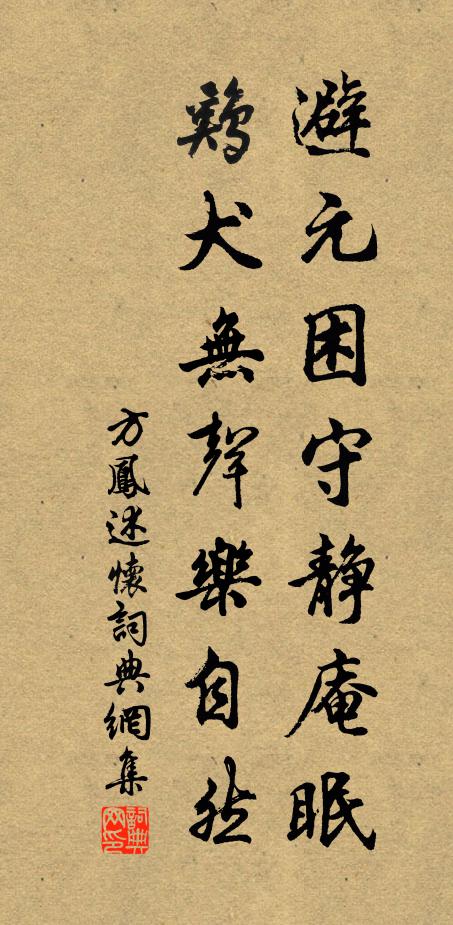 避元困守静庵眠
鷄犬無聲樂自然
方鳳述懷詞典網集
詞典網印